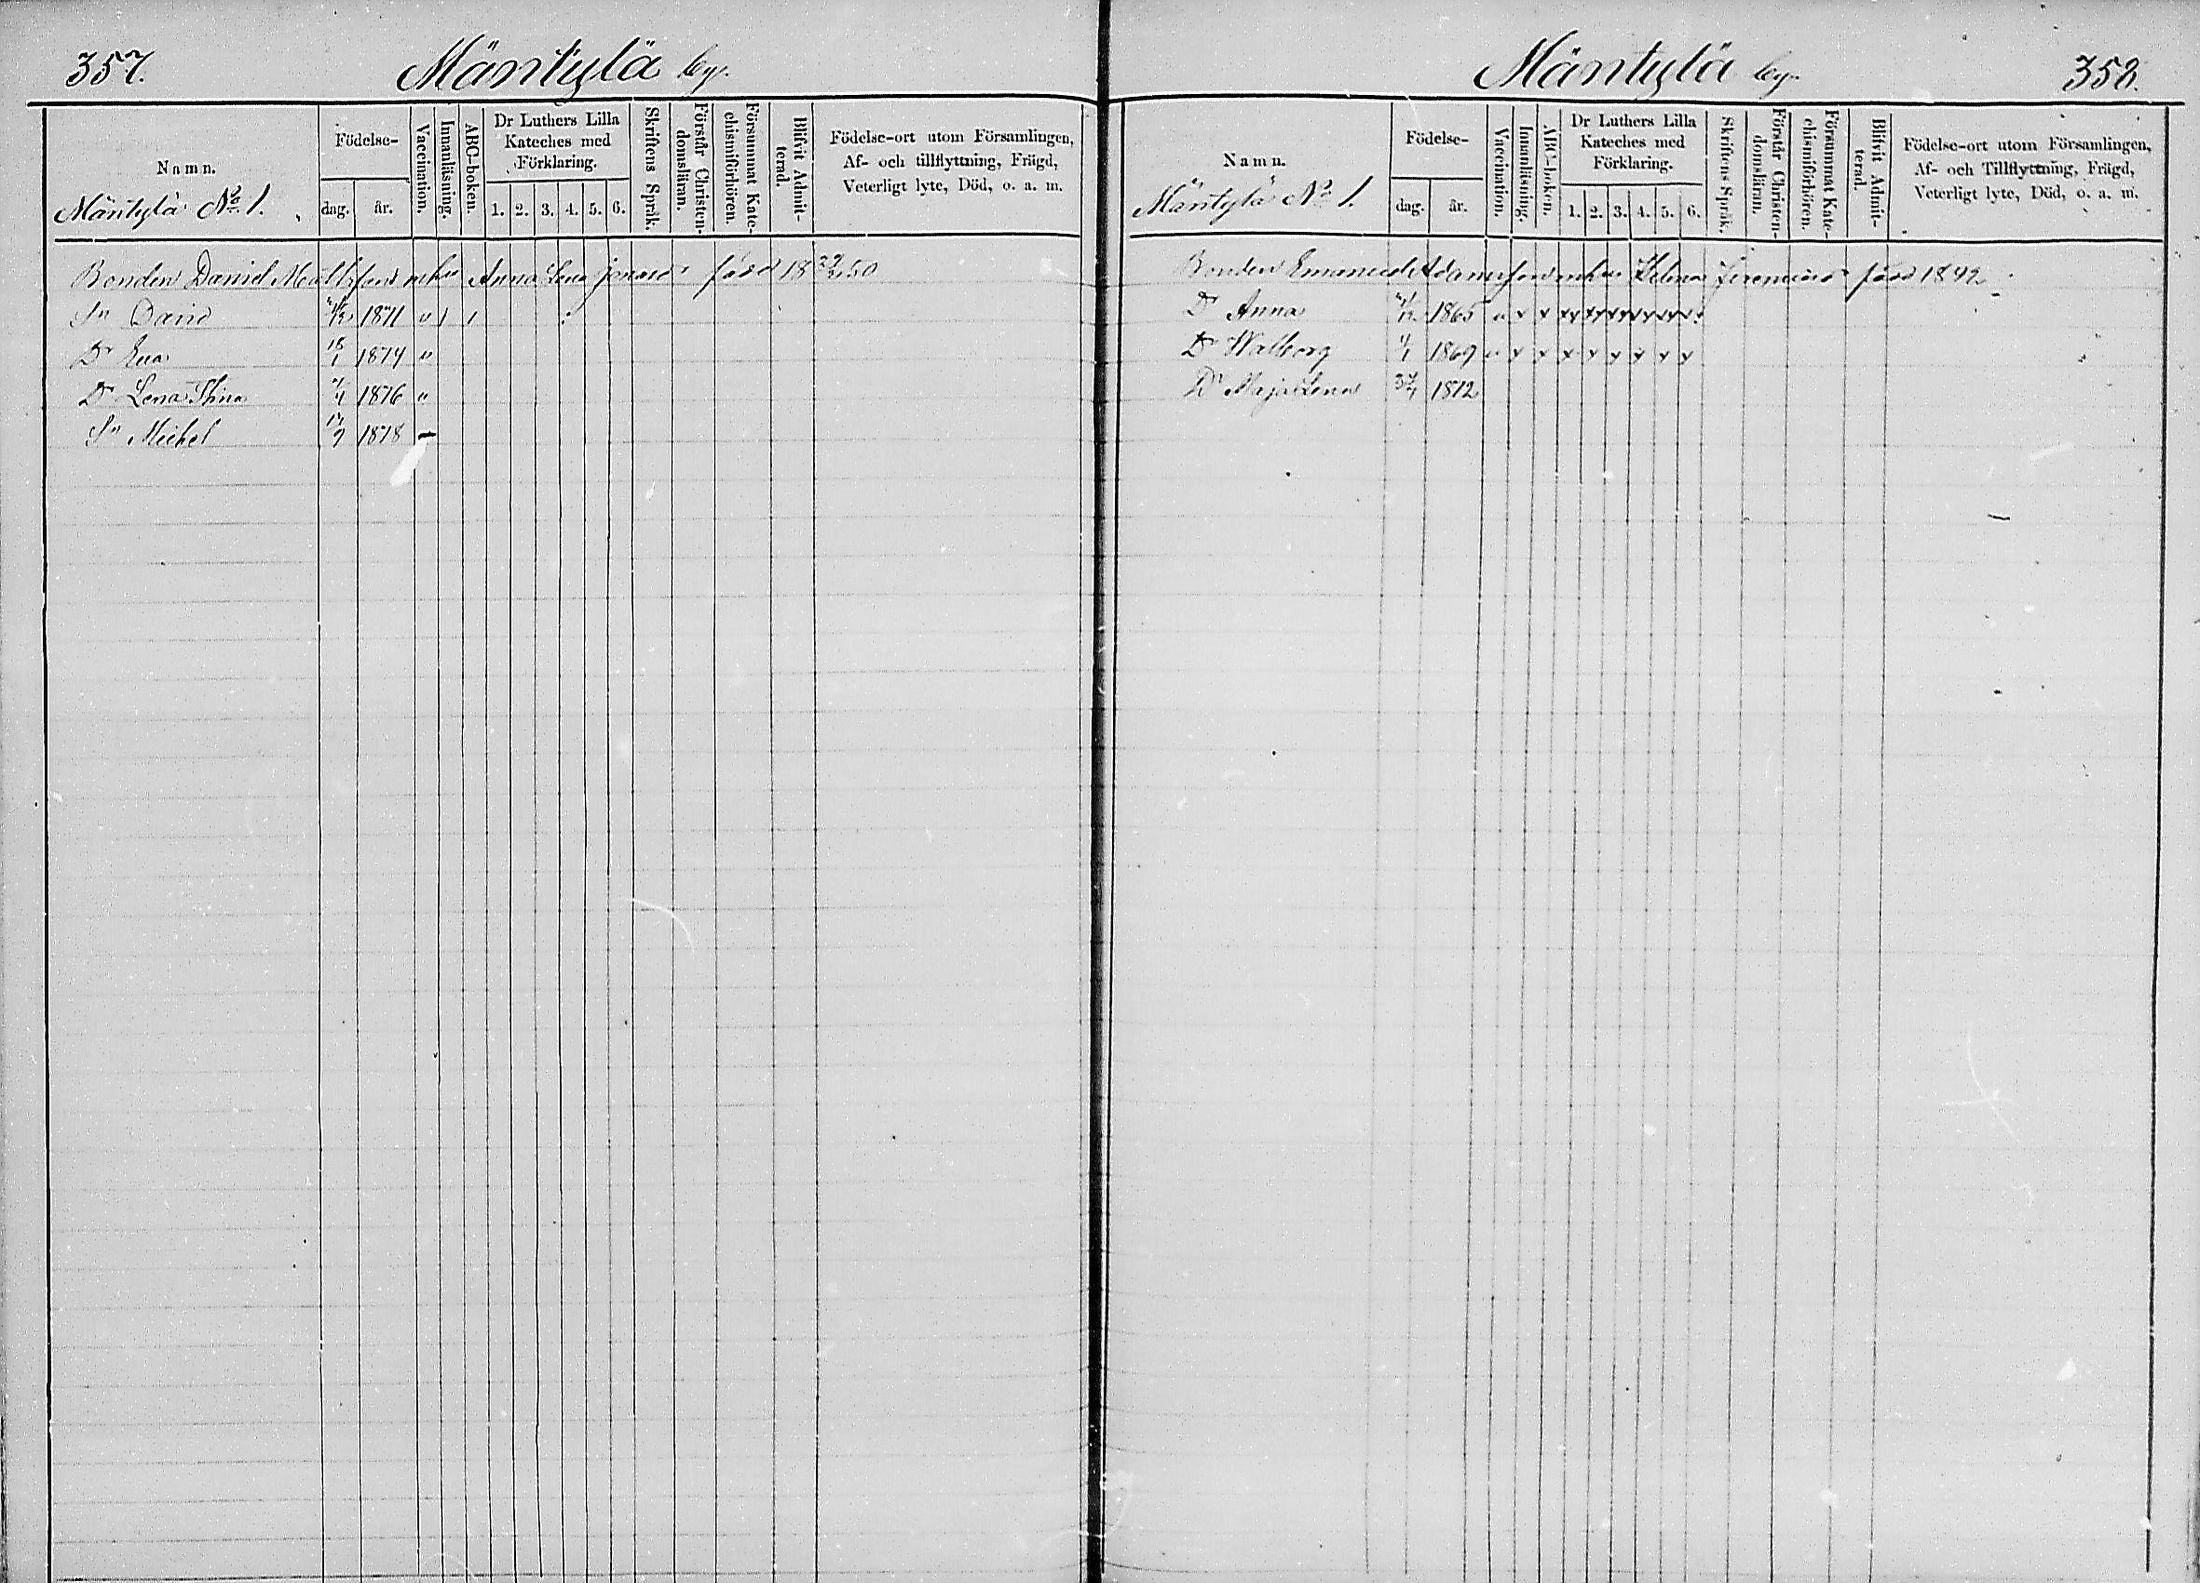 357. Mäntylä by.
Namn.
Mäntylä No 1.
Födelse-
dag. år.
Vaccination.
Innanläsning.
ABC-boken.
Dr Luthers Lilla
Kateches med
Förklaring.
1. 2. 3. 4. 5. 6.
Skriftens Språk.
Förstår Christen-
domsläran.
Försummat Kate-
chismiförhören.
Blifvit Admit-
terad.
Födelse-ort utom Församlingen,
Af- och tillflyttning, Frägd,
Veterligt lyte, Död, o. a. m.
Bonden Daniel Anna Lena född 18 50
Sn David 1871 " 1 1
Dr Eva 18/1 1874 "
Dr Lena Stina 1876 "
Sn Michel 1878 —
Mäntylä by. 358.
Namn.
Mäntylä No 1.
Födelse-
dag. år.
Vaccination.
Innanläsning.
ABC-boken.
Dr Luthers Lilla
Kateches med
Förklaring.
1. 2. 3. 4. 5. 6.
Skriftens Språk.
Förstår Christen-
domsläran.
Försummat Kate-
chismiförhören.
Blifvit Admit-
terad.
Födelse-ort utom Församlingen,
Af- och Tillflyttning, Frägd,
Veterligt lyte, Död, o. a. m.
Bonden Emanuel Adamsson född 1842
Dr Anna 1865
Dr Walborg 1/1 1869 " x x x x x x x x
Dr Maja Lena 1872